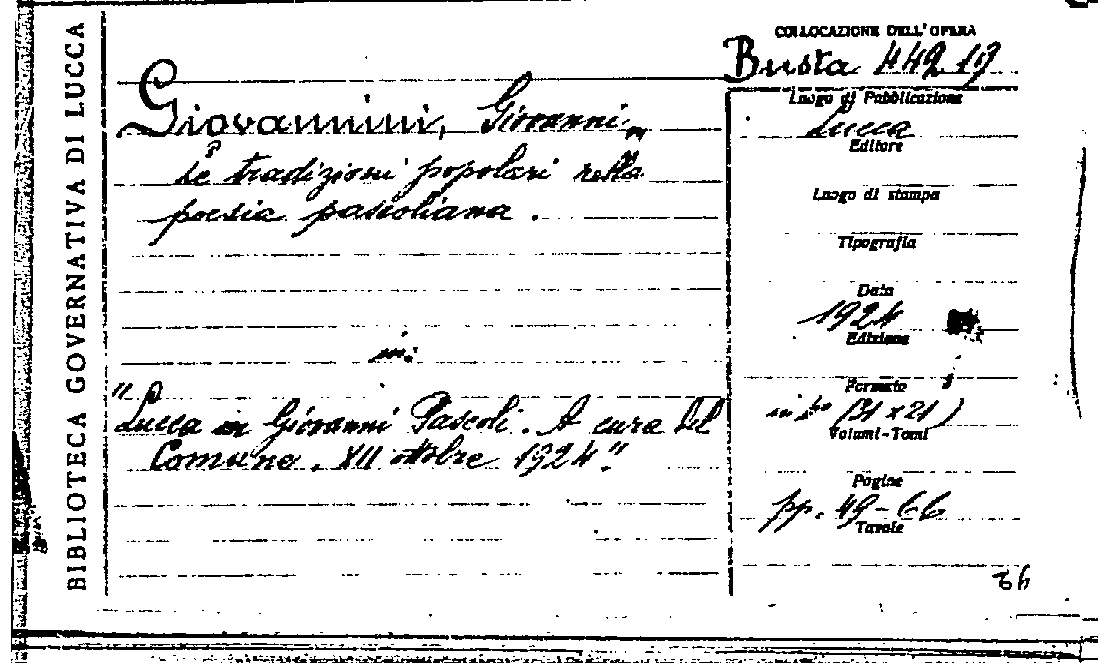 BIBLIOTECA GOVERNATIVA DI LUCCA
COLLOCAZIONE DELL'OPERA
Busta 442 19
Giovannini, Giovanni
Le tradizioni popolari nella
poesia pascoliana.
in:
"Lucca in Giovanni Pascoli. A cura del
Comune. XII ottobre 1924".
Luogo di Pubblicazione
Lucca
Editore
Luogo di stampa
Tipografia
Data
1924
Edizione
Formato
(31 x 21)
Volumi-Tomi
Pagine
pp. 49-66
Tavole